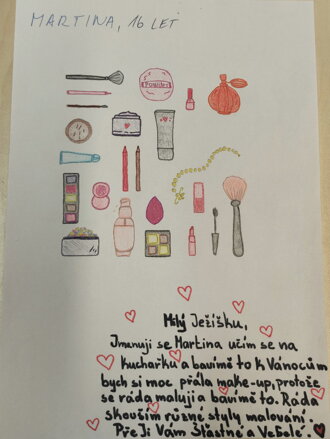 MARTINA, 16 LET
Powder
Milý Ježíšku,
Jmenuji se Martina učím se na
kuchařku a bavímě to k Vánocům
bych si moc přála make-up, protože
se ráda maluji a bavímě to. Ráda
skouším růsné styly malování.
Přeji Vám Šťastné a Veselé.